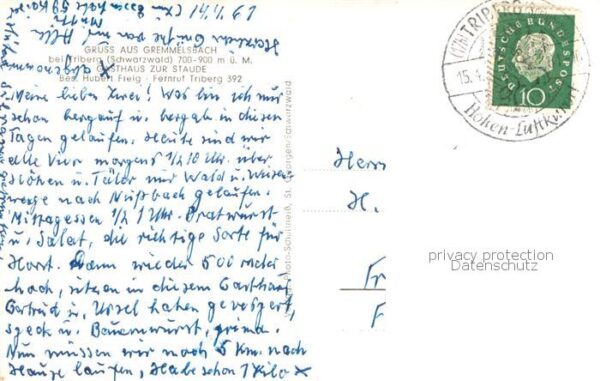 14.4.61
GRUSS AUS GREMMELSBACH
bei Triberg (Schwarzwald) 700-900 m ü. M.
GASTHAUS ZUR STAUDE
Bes. Hubert Freig - Fernruf Triberg 392
Meine lieben Zwei! Was bin ich nur
schon bergauf u. bergab in diesen
Tagen gelaufen. Heute sind wir
alle Vier morgens 1/2 10 Uhr über
Höhen u. Täler nur Wald u. Wiesen
wege nach Nußbach gelaufen.
Mittagessen 1/2 1 Uhr. Bratwurst
u. Salat, die richtige Sorte für
Horst. Dann wieder 500 m
hoch, sitzen in diesem Gasthaus
Gertrud u. Ursel haben gevespert,
Speck u. Bauernwurst, prima.
Nun müssen wir noch 5 km. nach
Hause laufen, Habe schon 1 Kilo x
x abgenommen
Herrn
H.
Fr
F
TRIBERG
15.4.
Höhen-Luftkurort
DEUTSCHE BUNDESPOST
10
privacy protection
Datenschutz